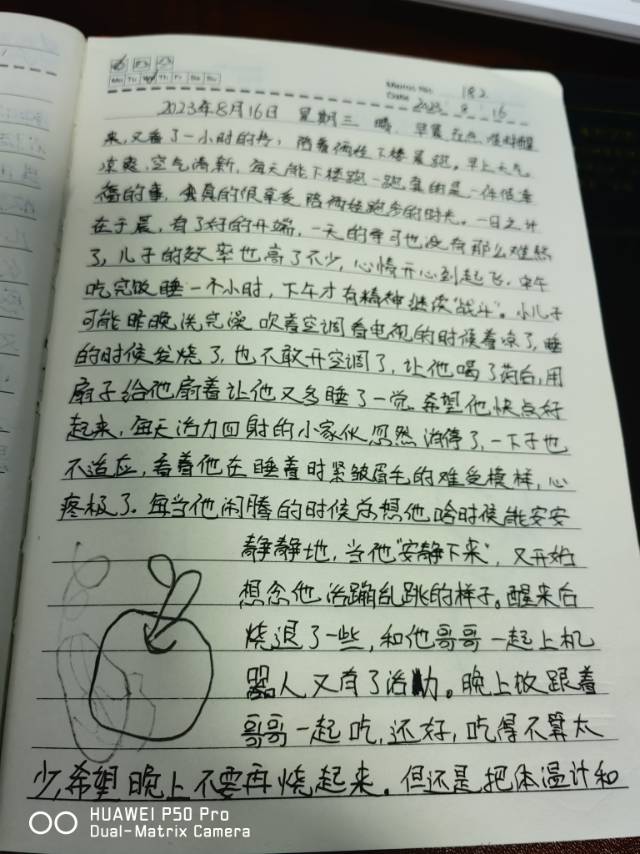 Mo Tu We Th Fr Sa Su
Memo No. 182
Date 2023 · 8 · 16
2023年8月16日 星期三 晴
来,又看了一小时的书,陪着俩娃下楼晨跑。早上天气
凉爽,空气清新,每天能下楼跑一跑真的是一件很幸
福的事,我真的很享受陪两娃跑步的时光。一日之计
在于晨,有了好的开端,一天的学习也没有那么难熬
了,儿子的效率也高了不少,心情开心到起飞。中午
吃完饭睡一个小时,下午才有精神继续"战斗"。小儿子
可能昨晚洗完澡吹着空调看电视的时候着凉了,睡
的时候发烧了,也不敢开空调了,让他喝了药后,用
扇子给他扇着让他又多睡了一觉。希望他快点好
起来,每天活力四射的小家伙忽然消停了,一下子也
不适应,看着他在睡着时紧皱眉毛的难受模样,心
疼极了。每当他闹腾的时候总想他啥时候能安安
静静地,当他"安静下来",又开始
想念他活蹦乱跳的样子。醒来后
烧退了一些,和他哥哥一起上机
器人又有了活力。晚上放跟着
哥哥一起吃,还好,吃得不算太
少,希望晚上不要再烧起来。但还是把体温计和
HUAWEI P50 Pro
Dual-Matrix Camera